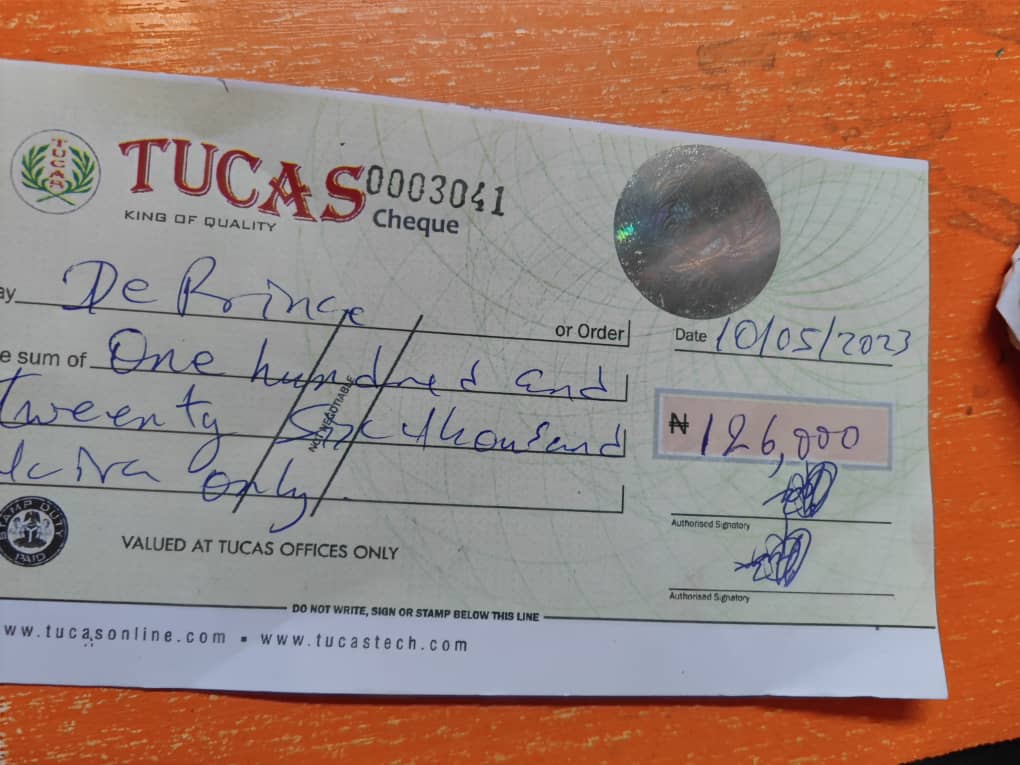 TUCAS
TUCAS
KING OF QUALITY
0003041
Cheque
ay De Prince or Order
Date 10/05/2023
e sum of One hundred and
tweenty Six thousand
only.
NOT NEGOTIABLE
₦ 126,000
Authorised Signatory
Authorised Signatory
STAMP DUTY
PAID
VALUED AT TUCAS OFFICES ONLY
DO NOT WRITE, SIGN OR STAMP BELOW THIS LINE
ww.tucasonline.com ▪ www.tucastech.com